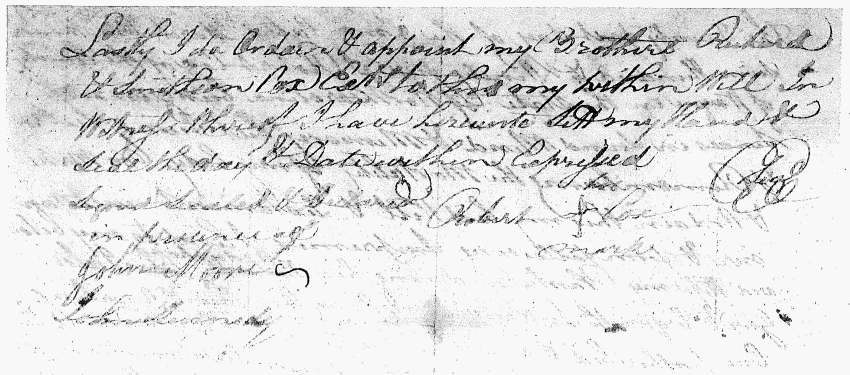 Lastly I do Ordain & appoint my Brothers Richard
& Smithson Cox Exrs to this my within Will In
Witness Whereof I have hereunto Sett my Hand &
Seal the day & Date within Expressed
Signd Sealed & Delivered
his
Robert + Cox
mark
Seal
in presence of
Moore
John Kennedy